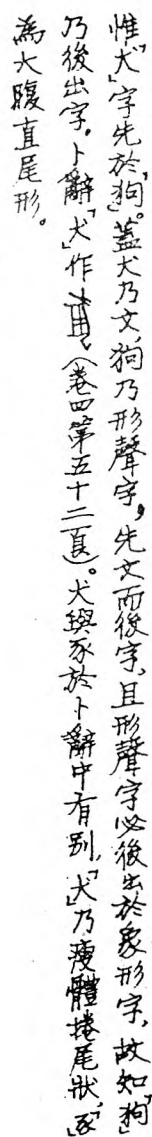 惟「犬」字先於「狗」。蓋犬乃文，狗乃形聲字，先文而後字，且形聲字必後出於象形字，故知「狗」
乃後出字。卜辭「犬」作（卷四第五十二頁）。犬與豕於卜辭中有別，「犬」乃瘦體捲尾狀，「豕」
為大腹直尾形。